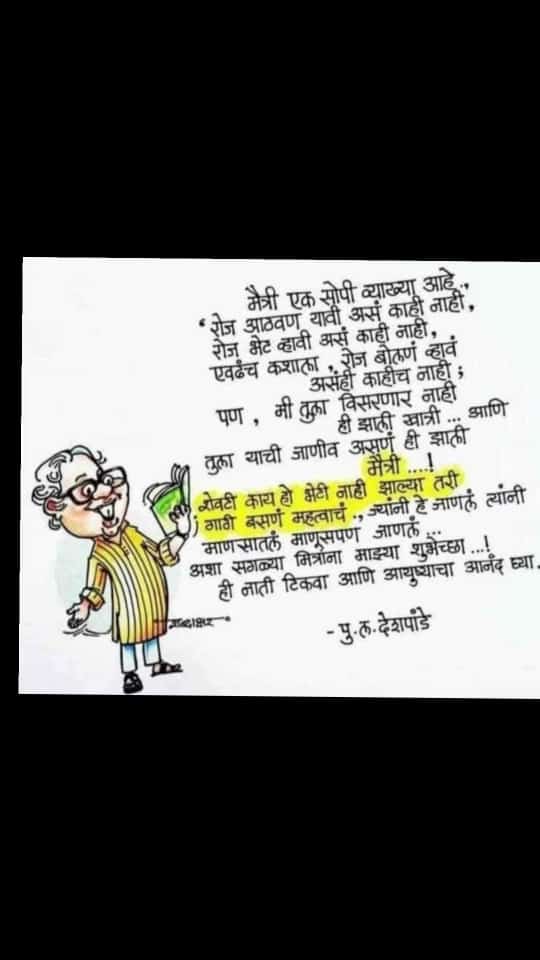 मैत्री एक सोपी व्याख्या आहे..,
‘रोज आठवण यावी असं काही नाही,
रोज भेट व्हावी असं काही नाही,
एवढंच कशाला, रोज बोलणं व्हावं
असंही काहीच नाही;
पण, मी तुला विसरणार नाही
ही झाली खात्री ... आणि
तुला याची जाणीव असणं ही झाली
मैत्री ....!
शेवटी काय हो भेटी नाही झाल्या तरी
गाठी बसणं महत्वाचं.., ज्यांनी हे जाणलं त्यांनी
माणसातलं माणूसपण जाणलं ...
अशा सगळ्या मित्रांना माझ्या शुभेच्छा ...!
ही नाती टिकवा आणि आयुष्याचा आनंद घ्या.
- पु.ल.देशपांडे